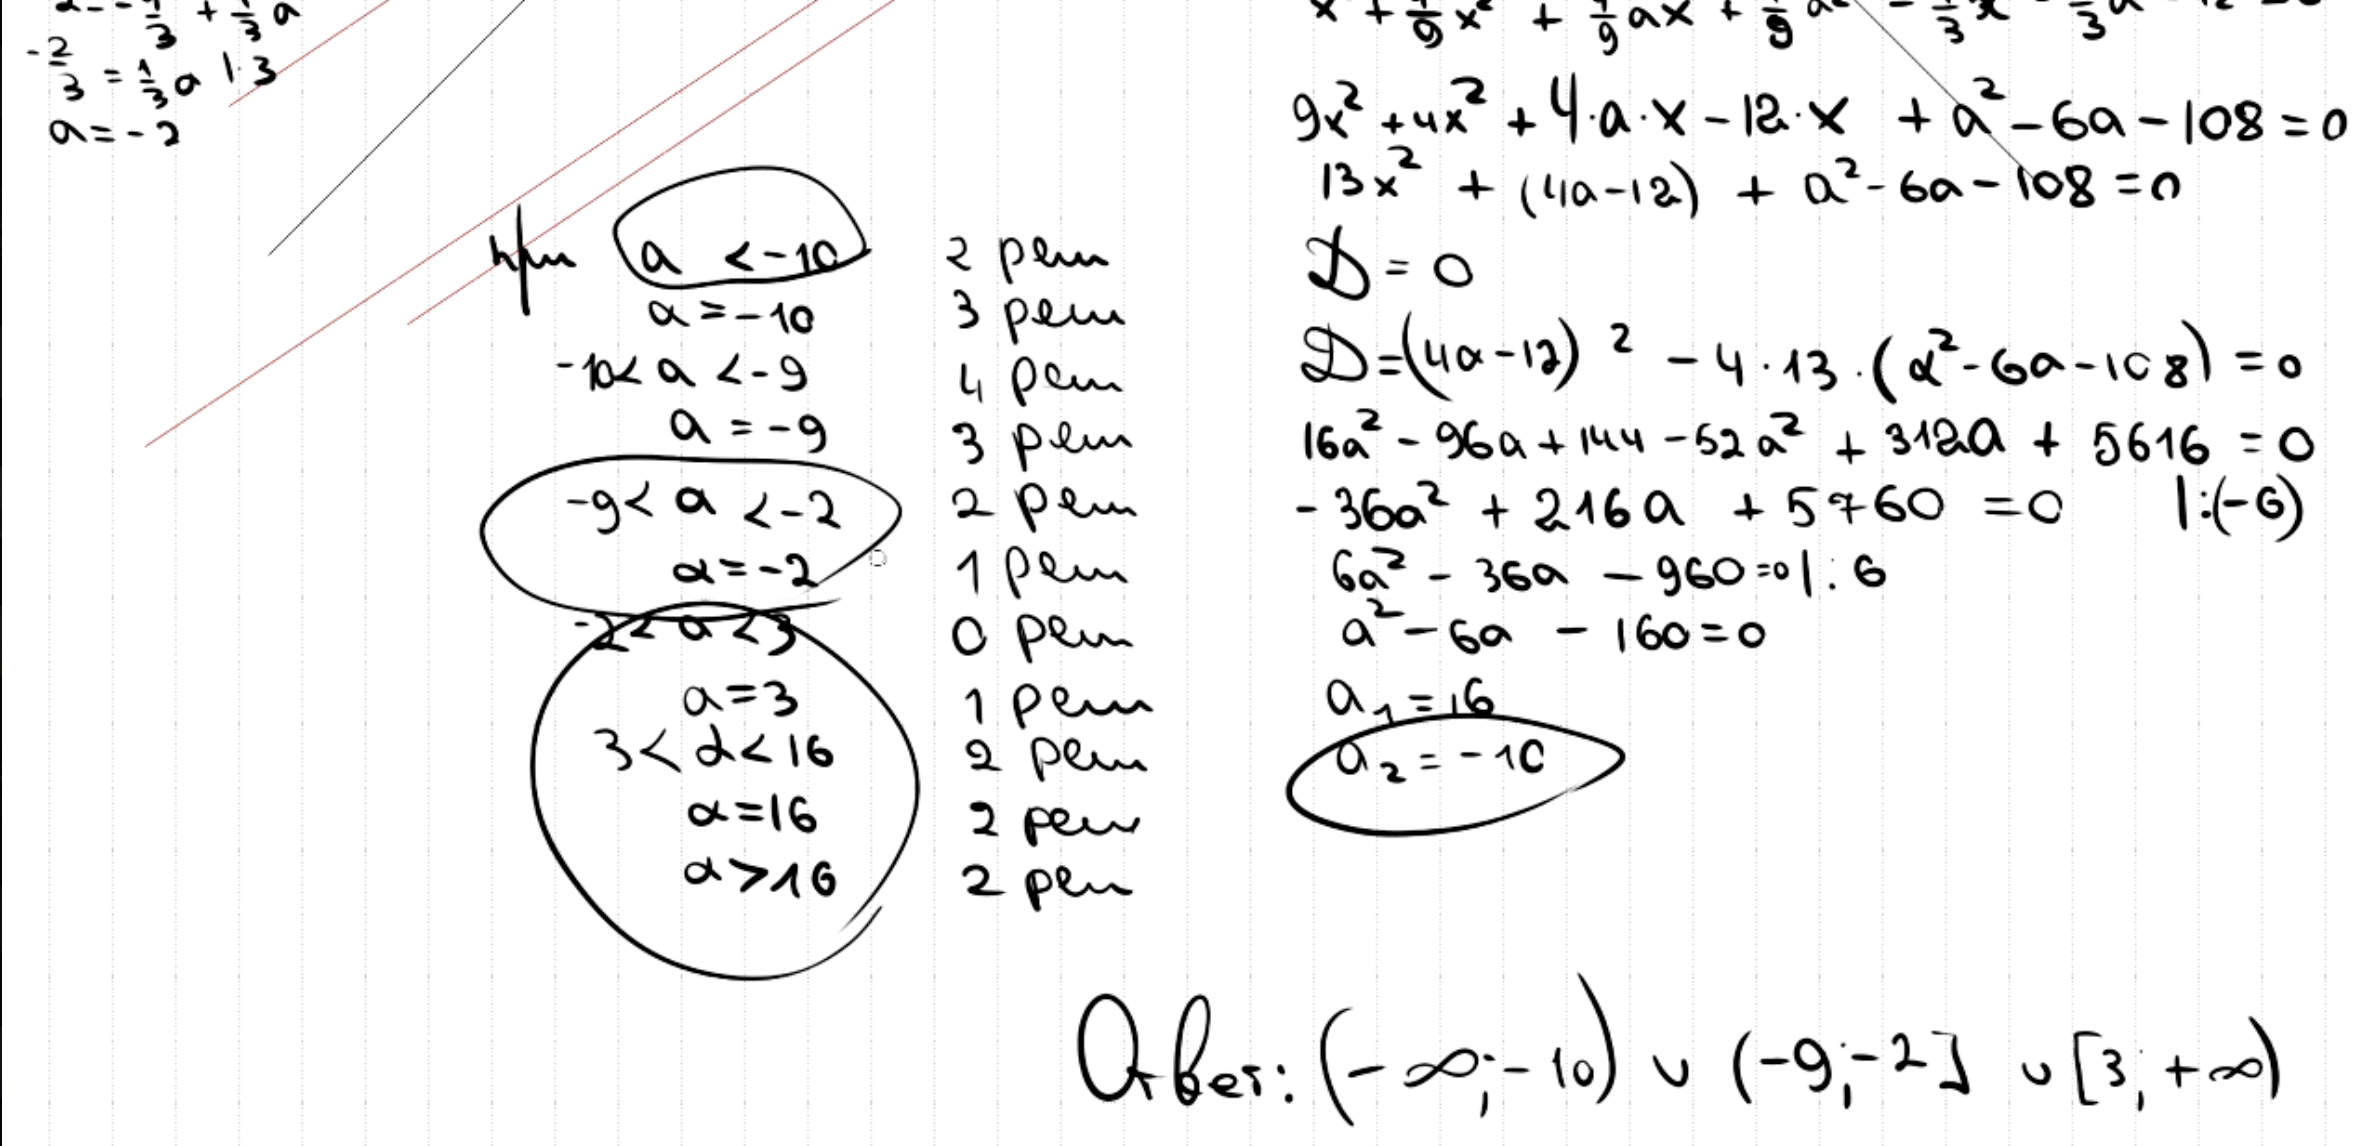 -2/3 = 1/3 a |·3
a = -2
при a < -10 2 реш
a = -10 3 реш
-10 < a < -9 4 реш
a = -9 3 реш
-9 < a < -2 2 реш
a = -2 1 реш
-2 < a < 3 0 реш
a = 3 1 реш
3 < a < 16 2 реш
a = 16 2 реш
a > 16 2 реш
9x² + 4x² + 4·a·x - 12·x + a² - 6a - 108 = 0
13x² + (4a-12) + a² - 6a - 108 = 0
D = 0
D = (4a-12)² - 4·13·(a²-6a-108) = 0
16a² - 96a + 144 - 52a² + 312a + 5616 = 0
-36a² + 216a + 5760 = 0 |:(-6)
6a² - 36a - 960 = 0 |:6
a² - 6a - 160 = 0
a₁ = 16
a₂ = -10
Ответ: (-∞; -10) ∪ (-9; -2] ∪ [3; +∞)